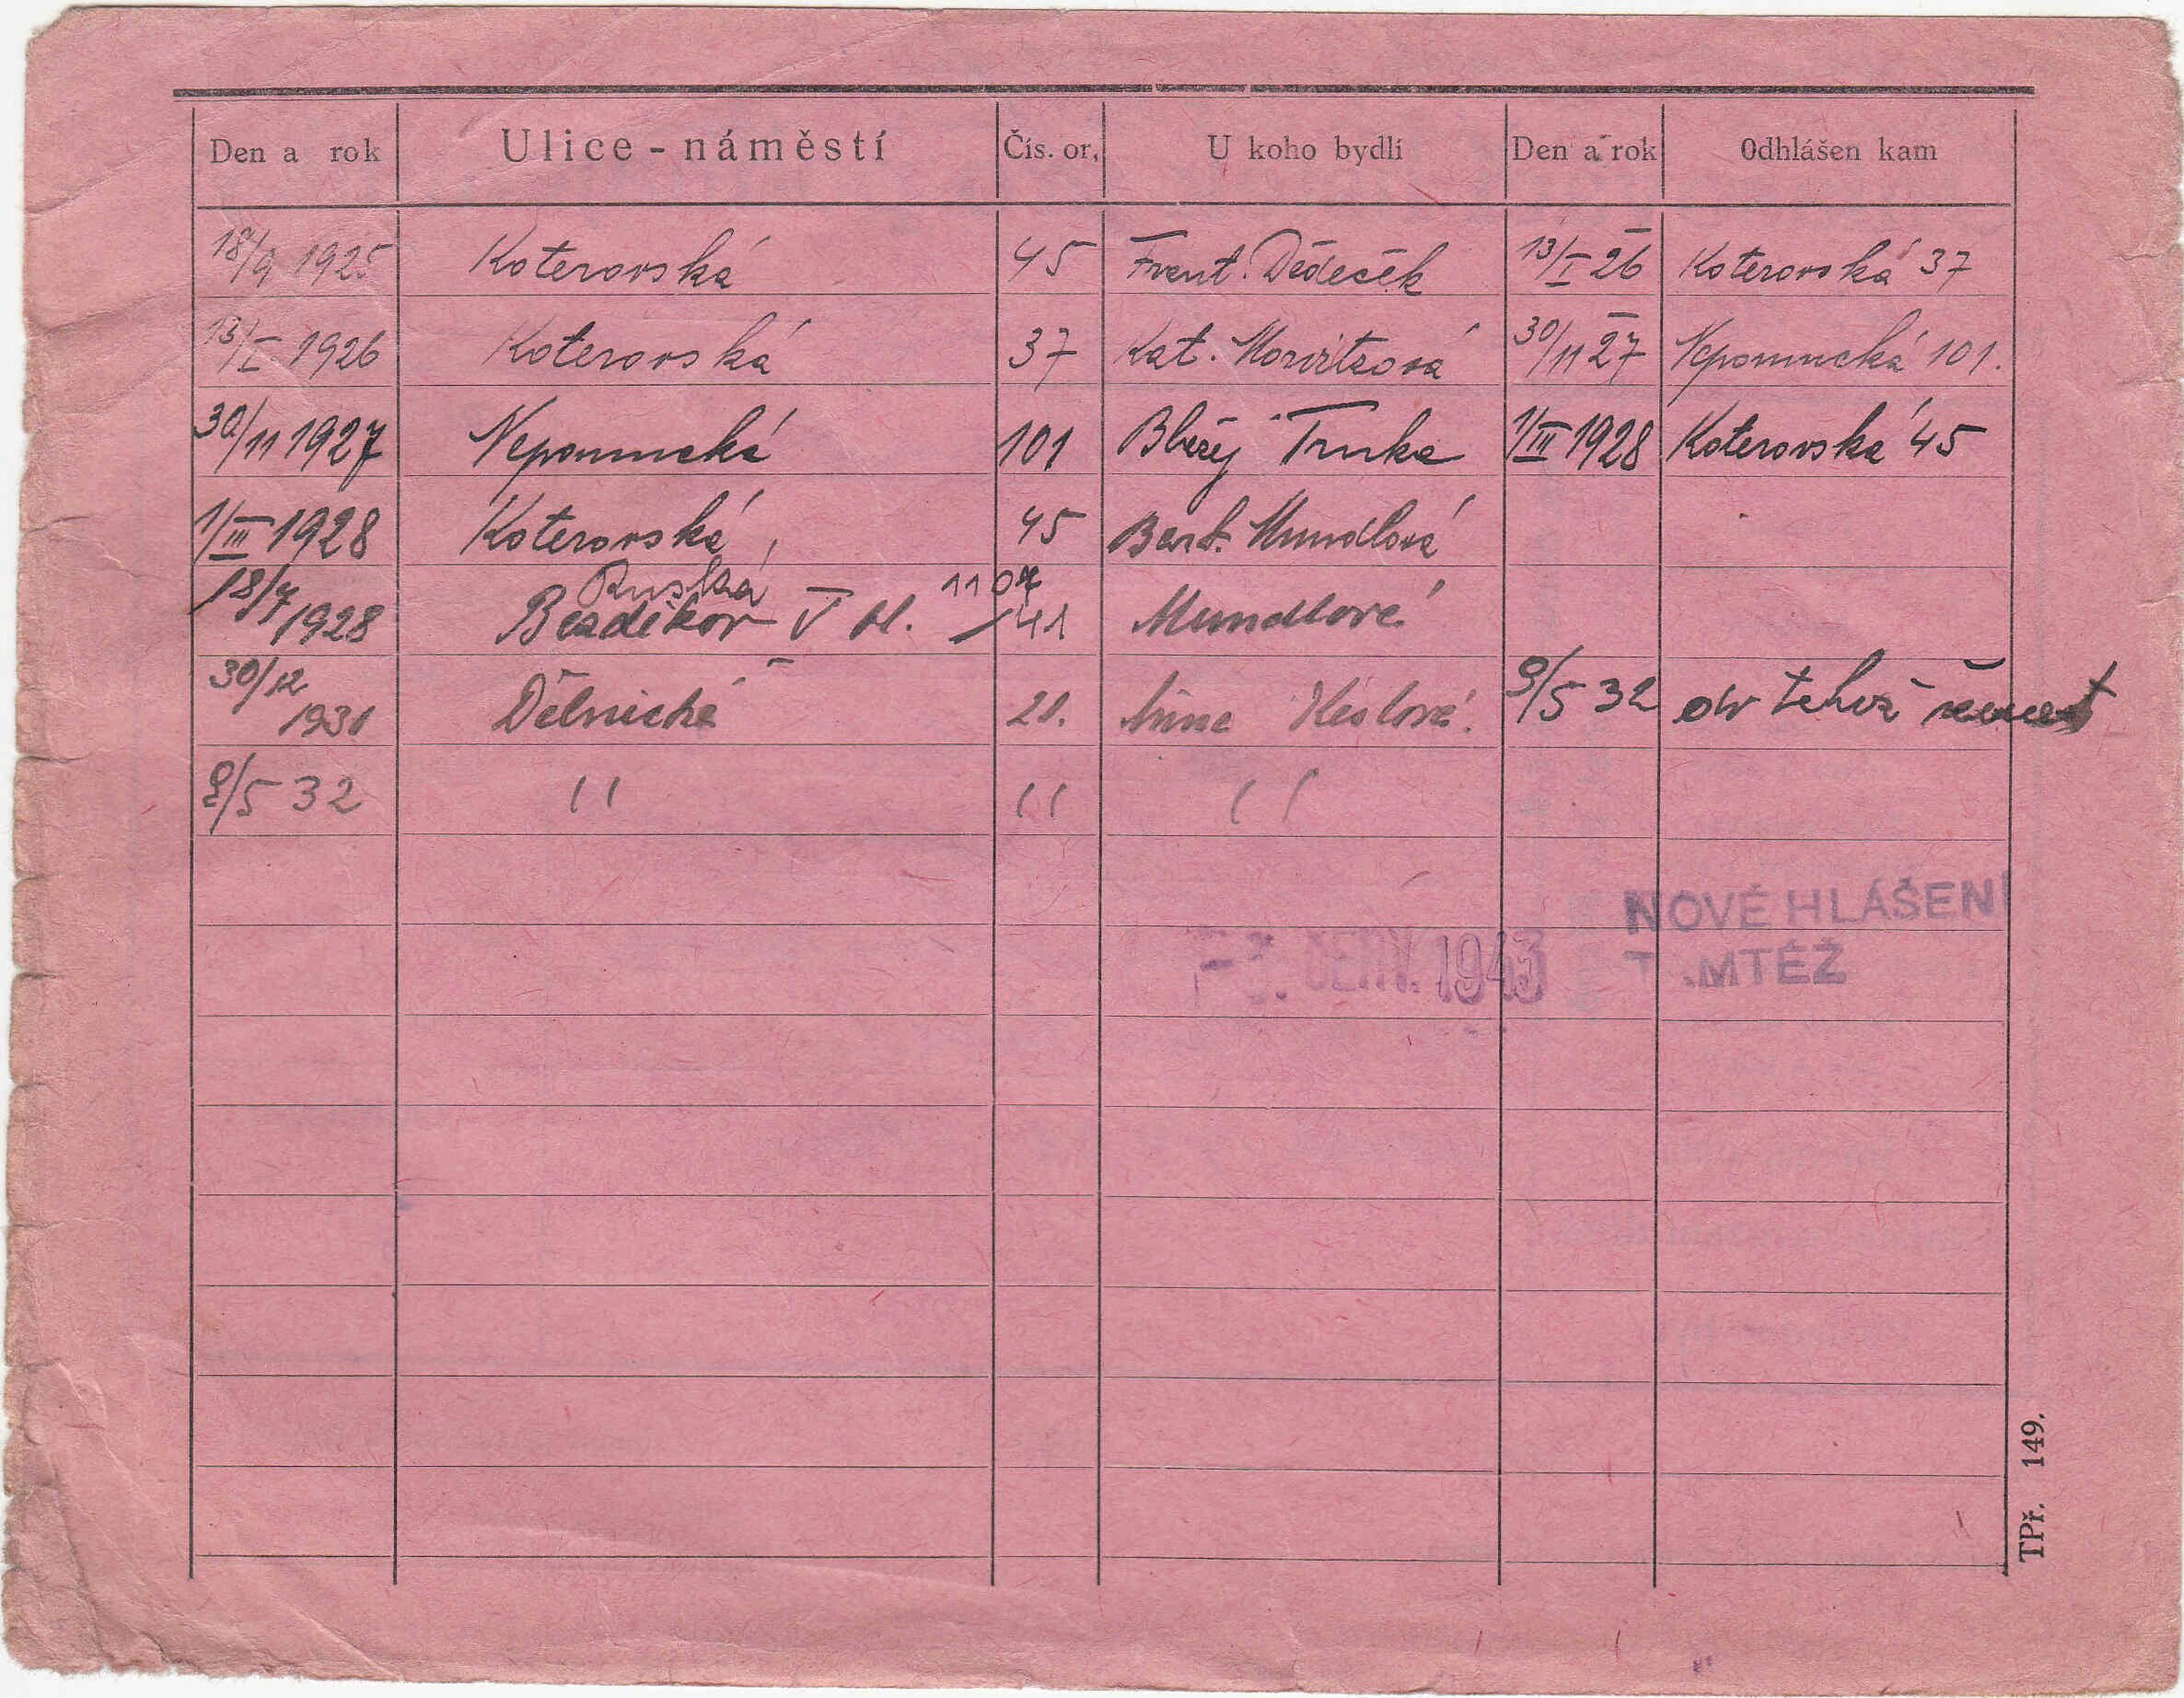 Den a rok Ulice - náměstí Čís. or. U koho bydlí Den a rok Odhlášen kam
18/9 1925 Koterovská 45 Frant. Dědeček 13/I 26 Koterovská 37
13/I 1926 Koterovská 37 Kat. 30/11 27 Nepomucká 101.
30/11 1927 Nepomucká 101 Blažej Trnka 1/III 1928 Koterovská 45
1/III 1928 Koterovská 45 Barb. Mundlová
Ruská 1107
18/7 1928 Bezděkov V /41 Mundlová
30/12 1931 Dělnická 21. Anna 9/5 32
9/5 32 " " "
NOVÉ HLÁŠENÍ
ČERV. 1943 TAMTÉŽ
TPř. 149.